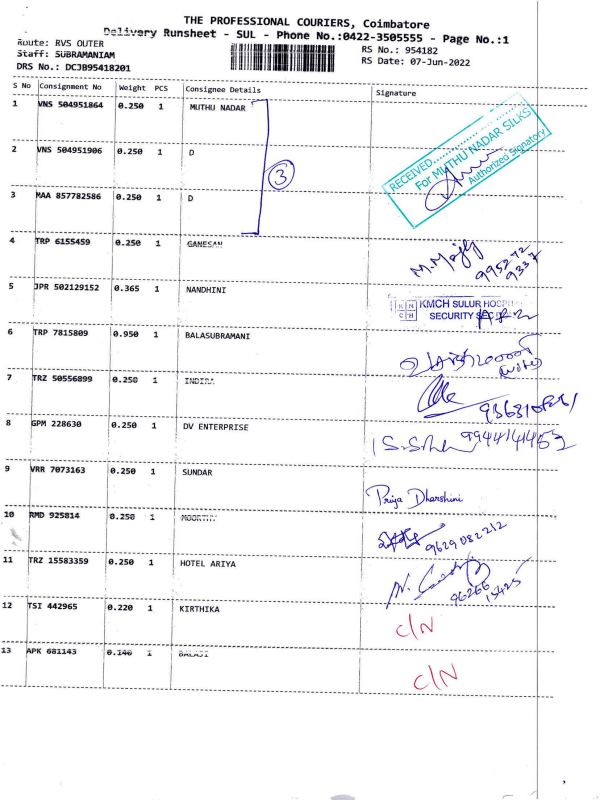 THE PROFESSIONAL COURIERS, Coimbatore
Delivery Runsheet - SUL - Phone No.:0422-3505555 - Page No.:1
Route: RVS OUTER
RS No.: 954182
Staff: SUBRAMANIAM
RS Date: 07-Jun-2022
DRS No.: DCJB95418201
S No Consignment No Weight PCS Consignee Details Signature
1 VNS 504951864 0.250 1 MUTHU NADAR
RECEIVED............
For MUTHU NADAR SILKS
Authorized Signatory
2 VNS 504951906 0.250 1 D
3
3 MAA 857782586 0.250 1 D
4 TRP 6155459 0.250 1 GANESAN
99527 2
9337
5 JPR 502129152 0.365 1 NANDHINI
KMCH SULUR
SECURITY
6 TRP 7815809 0.950 1 BALASUBRAMANI
(wife)
7 TRZ 50556899 0.250 1 INDIRA
8 GPM 228630 0.250 1 DV ENTERPRISE
9 VRR 7073163 0.250 1 SUNDAR
Priya Dharshini
10 RMD 925814 0.250 1 MOORTHY
9629082212
11 TRZ 15583359 0.250 1 HOTEL ARIYA
96266
15425
12 TSI 442965 0.220 1 KIRTHIKA
C/N
13 APK 681143 0.140 1 BALAJI
C/N